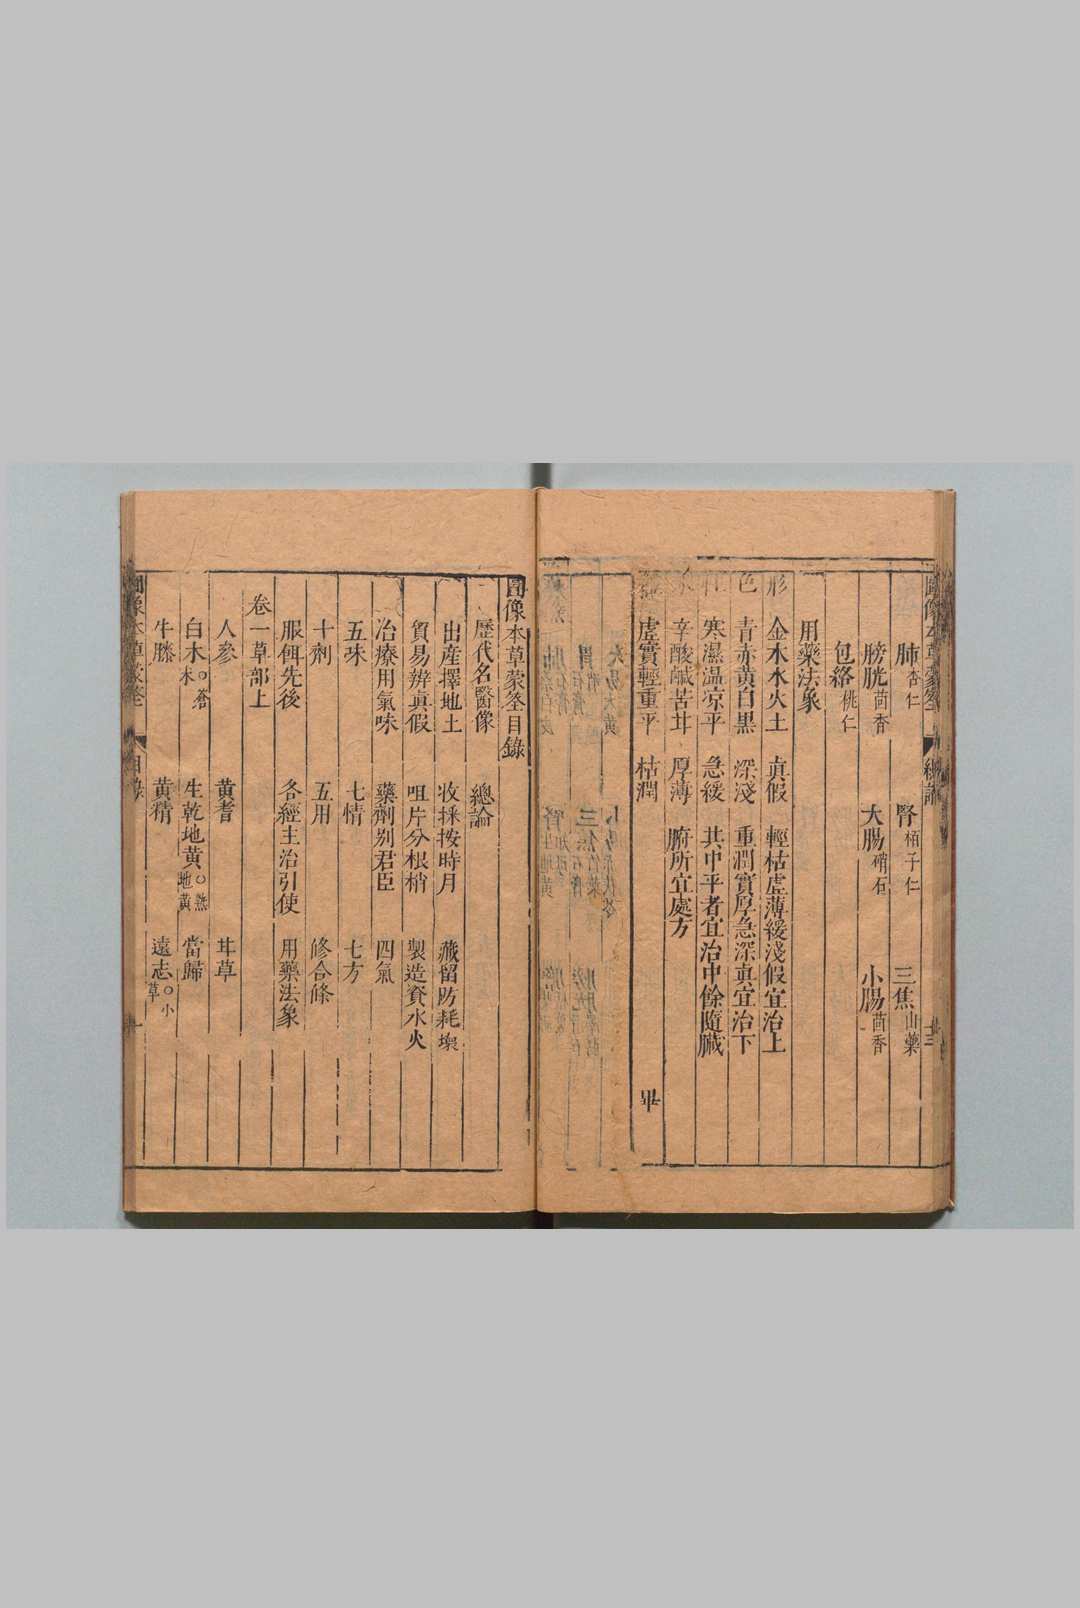 肺杏仁 腎栢子仁 三焦山藥
膀胱茴香 大腸硝石 小腸茴香
包絡桃仁
用藥法象
形 金木水火土 真假 輕枯虛薄緩淺假宜治上
色 青赤黄白黒 深淺 重潤實厚急深真宜治下
性 寒濕温凉平 急緩 其中平者宜治中餘隨臟
味 辛酸鹹苦甘 厚薄 腑所宜處方
體 虛實輕重平 枯潤
圖像本草蒙筌目錄
歷代名醫像 總論
出産擇地土 收採按時月 藏留防耗壞
貿易辨真假 咀片分根梢 製造資水火
治療用氣味 藥劑别君臣 四氣
五味 七情 七方
十劑 五用 修合條
服餌先後 各經主治引使 用藥法象
卷一草部上
人參 黄耆 甘草
白木○蒼木 生乾地黄○熟地黄 當歸
牛膝 黄精 遠志○小草
圖像本草蒙筌 目錄 一